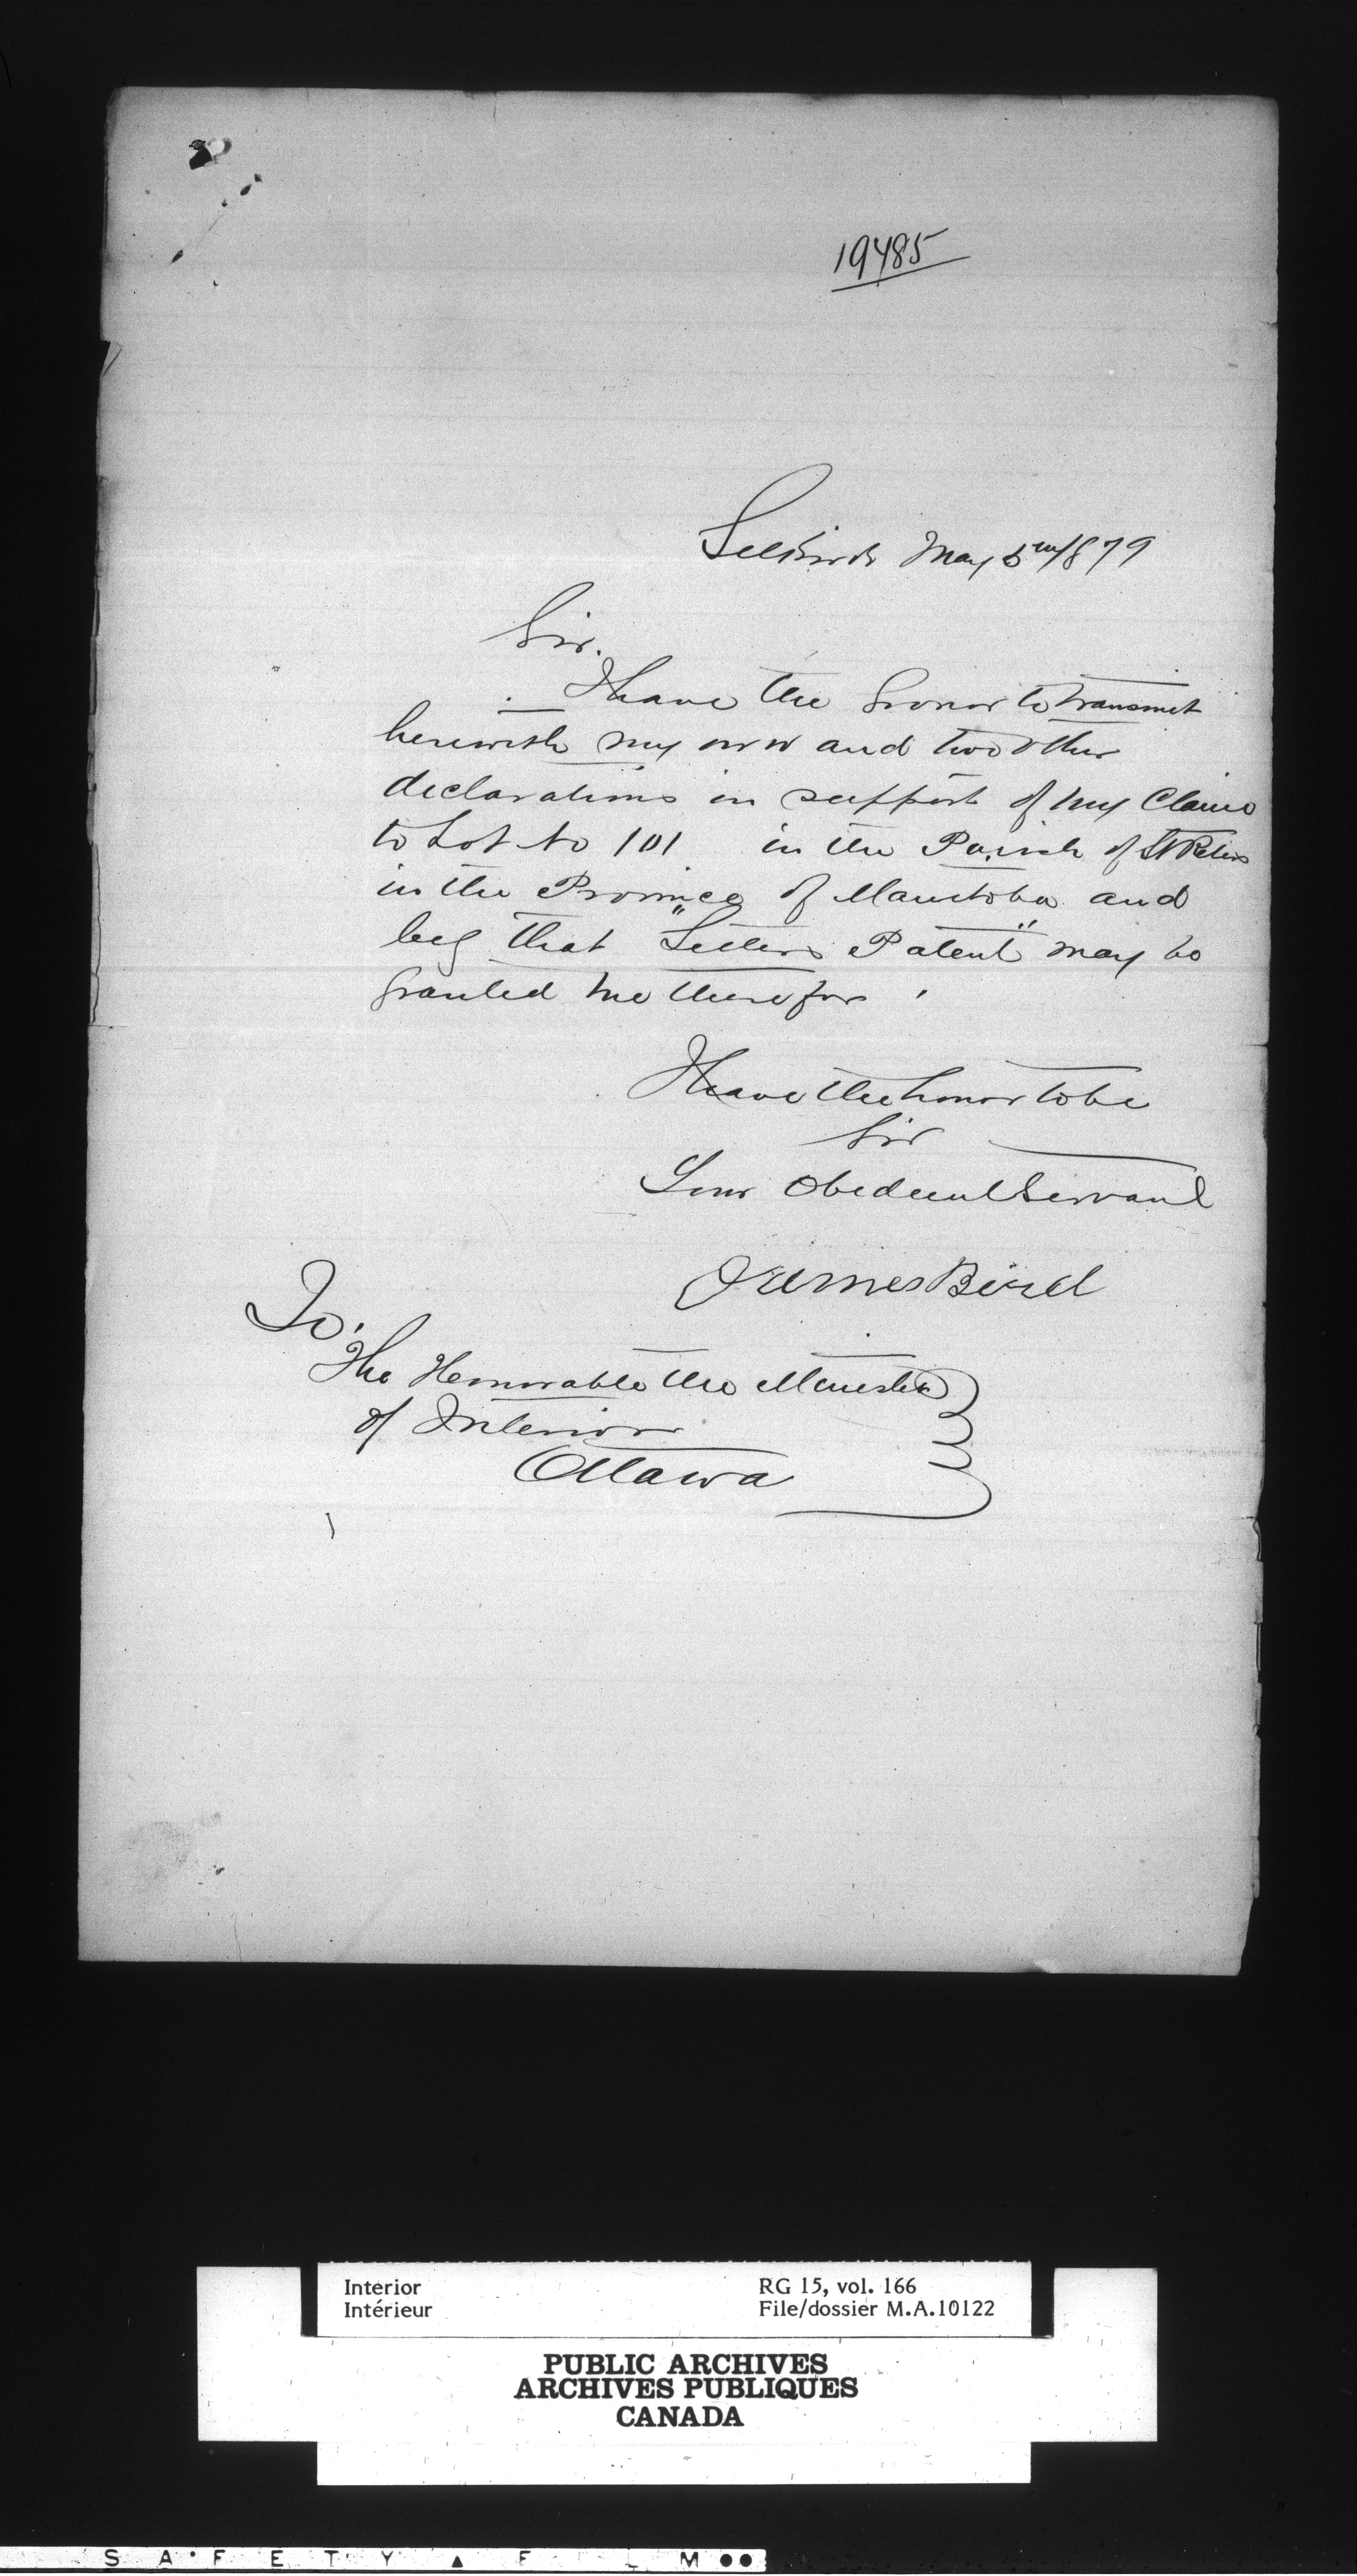 19485
Selkirk May 5th 1879
Sir.
I have the honor to transmit
herewith my own and two other
declarations in support of my Claim
to Lot No 101 in the Parish of St Peters
in the Province of Manitoba and
beg that "Letters Patent" may be
granted me therefor.
I have the honor to be
Sir
Your Obedient Servant
James Bird
To,
The Honorable the Minister
of Interior
Ottawa
Interior RG 15, vol. 166
Intérieur File/dossier M.A.10122
PUBLIC ARCHIVES
ARCHIVES PUBLIQUES
CANADA
SAFETY ▲ F L M ●●